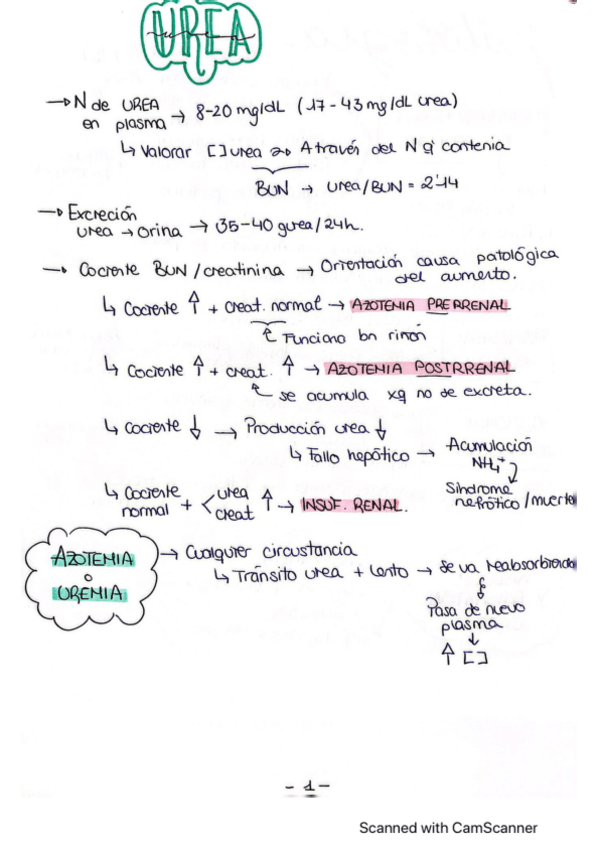 UREA
→ N de UREA en plasma → 8-20 mg/dL (17-43 mg/dL urea)
↳ Valorar [ ] urea ⟿ A través del N q' contenia
BUN → urea/BUN = 2'14
→ Excreción urea → orina → 35-40 gurea/24h.
→ Cociente BUN/creatinina → Orientación causa patológica del aumento.
↳ Cociente ↑ + creat. normal → AZOTEMIA PRERRENAL
↑ Funciona bn riñón
↳ Cociente ↑ + creat. ↑ → AZOTEMIA POSTRRENAL
↖ se acumula xq no se excreta.
↳ Cociente ↓ → Producción urea ↓
↳ Fallo hepático → Acumulación NH₄⁺
Síndrome nefrótico/muerte
↳ Cociente normal + < urea creat ↑ → INSUF. RENAL.
AZOTEMIA
o
UREMIA
→ Cualquier circustancia
↳ Tránsito urea + lento → se va reabsorbiendo
Pasa de nuevo
plasma
↓
↑ [ ]
- 1 -
Scanned with CamScanner